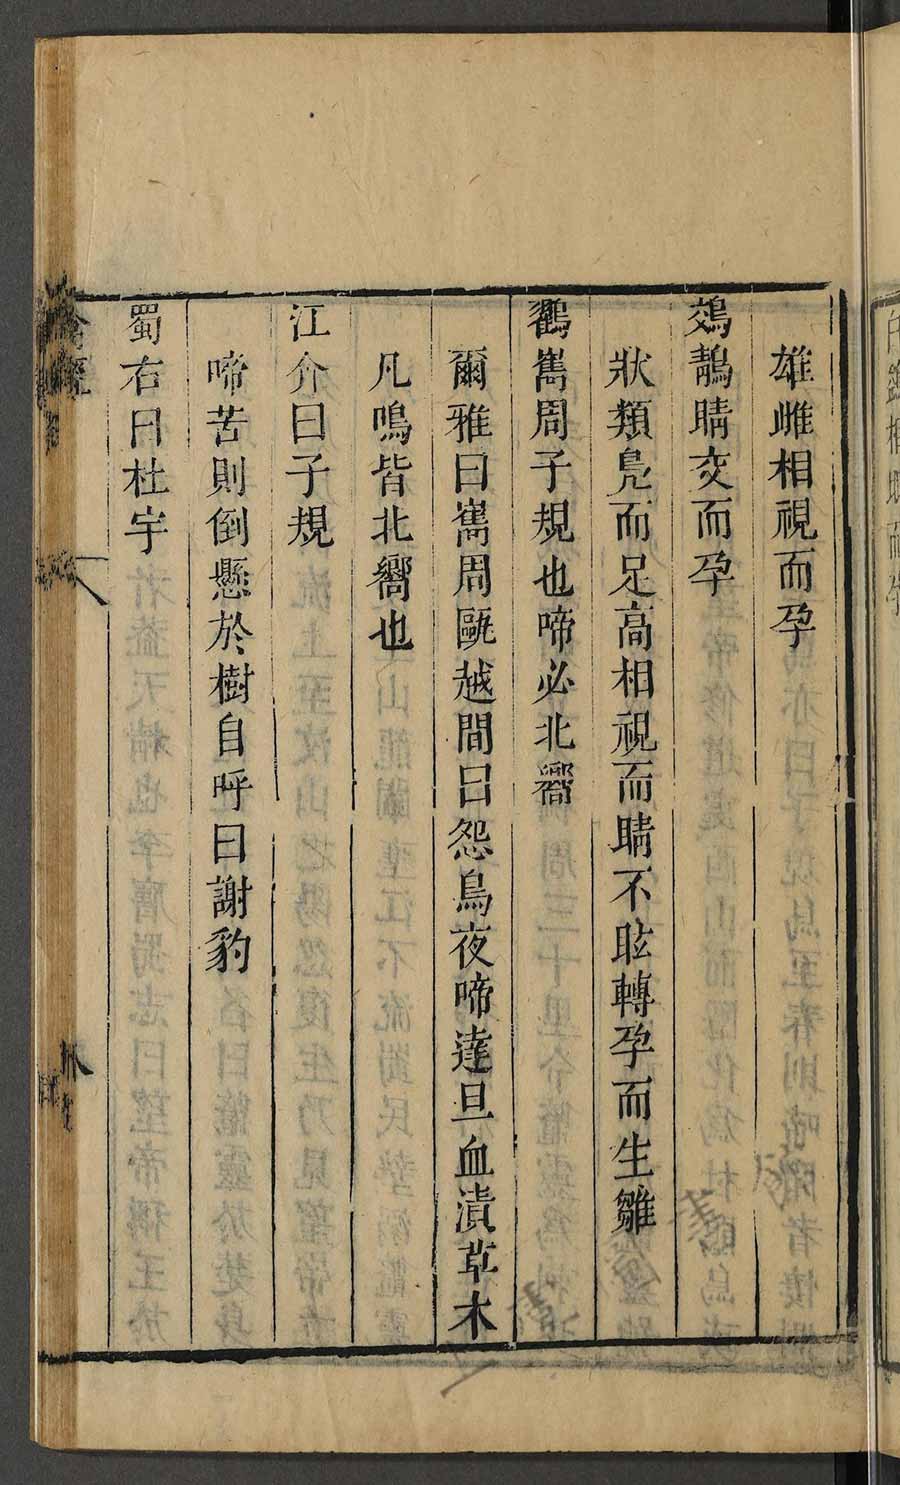 雄雌相視而孕
鵁鶄睛交而孕
狀類鳧而足高相視而睛不眩轉孕而生雛
鸛巂周子規也啼必北嚮
爾雅曰巂周甌越間曰怨鳥夜啼達旦血漬草木
凡鳴皆北嚮也
江介曰子規
啼苦則倒懸於樹自呼曰謝豹
蜀右曰杜宇
禽經
八